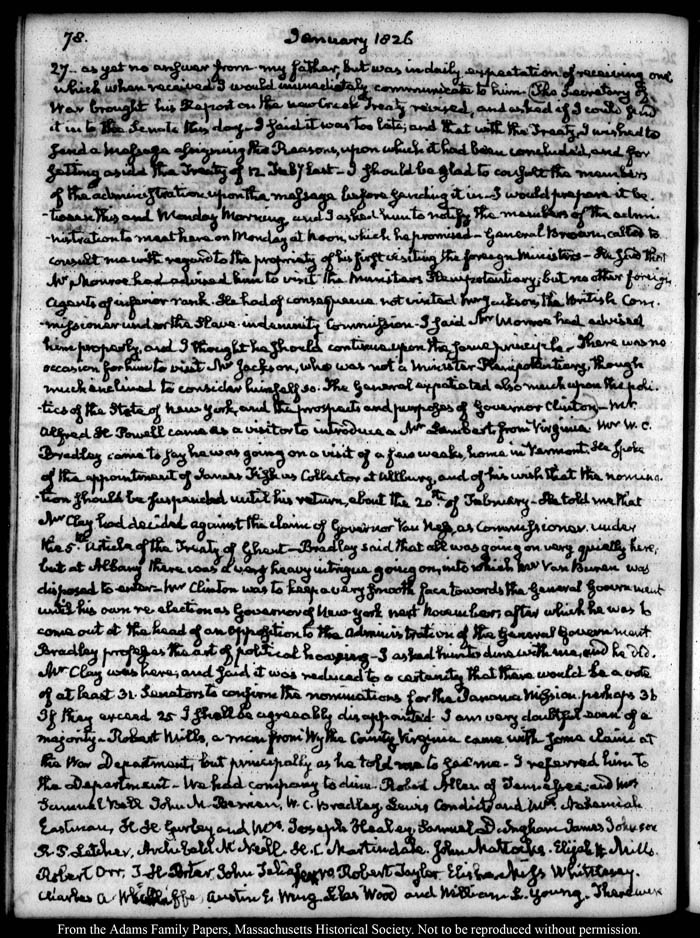 78. January 1826
27.. as yet no answer from my father, but was in daily expectation of receiving one
which when received I would immediately communicate to him. The Secretary of
War brought his Report on the new Creek Treaty revised, and asked if I could send
it in to the Senate this day - I said it was too late; and that with the Treaty, I wished to
send a Message assigning the Reasons, upon which it had been concluded, and for
setting aside the Treaty of 12 Feby last - I should be glad to consult the members
of the administration upon the message before sending it in - I would prepare it be-
-tween this and Monday Morning and I asked him to notify the members of the admi-
-nistration to meet here on Monday at Noon, which he promised - General Brown, called to
consult me with regard to the propriety of his first visiting the foreign Ministers - He said that
Mr Monroe had advised him to visit the Ministers Plenipotentiary, but no other foreign
agents of inferior rank. He had of consequence not visited Mr Jackson, the British Com-
-missioner under the Slave-indemnity Commission - I said Mr Monroe had advised
him properly, and I thought he should continue upon the same principle. There was no
occasion for him to visit Mr Jackson, who was not a Minister Plenipotentiary, though
much inclined to consider himself so. The General expatiated also much upon the poli-
-tics of the State of New York, and the prospects and purposes of Governor Clinton - Mr
Alfred H Powell came as a visitor to introduce a Mr Lambert from Virginia. Mr W. C.
Bradley came to say he was going on a visit of a few weeks, home in Vermont. He spoke
of the appointment of James Fisk as Collector at Allburg, and of his wish that the nomina-
-tion should be suspended until his return, about the 20th of February - He told me that
Mr Clay had decided against the claim of Governor Van Ness, as Commissioner under
the 5th Article of the Treaty of Ghent - Bradley said that all was going on very quietly here,
but at Albany there was a very heavy intrigue going on, into which Mr Van Buren was
disposed to enter - Mr Clinton was to keep a very smooth face towards the General Government
until his own re-election as Governor of New-York next November; after which he was to
come out at the head of an opposition to the Administration of the General Government
Bradley professes the art of political hoaxing - I asked him to dine with me, and he did.
Mr Clay was here, and said it was reduced to a certainty that there would be a vote
of at least 31. Senators to confirm the nominations for the Panama Mission. perhaps 36
If they exceed 25 I shall be agreeably disappointed. I am very doubtful even of a
majority - Robert Mills, a man from Wythe County Virginia came with some claim at
the War Department, but principally as he told me to see me - I referred him to
the Department - We had company to dine. Robert Allen of Tennessee, and Mrs
Samuel Bell John M. Berrien, W. C. Bradley, Lewis Condict, and Mrs. Nehemiah
Eastman, H. H. Gurley and Mrs, Joseph Healey, Samuel D. Ingham James Johnson
R. P. Letcher, Archibald M. Neill H. C. Martindale. John Mattocks. Elijah H Mills.
Robert Orr, T. H. Porter, John Taliaferro Robert Taylor Elisha Whittlesey.
Charles A. Wickliffe, Austin E. Wing, Silas Wood and William L. Young. There were
From the Adams Family Papers, Massachusetts Historical Society. Not to be reproduced without permission.